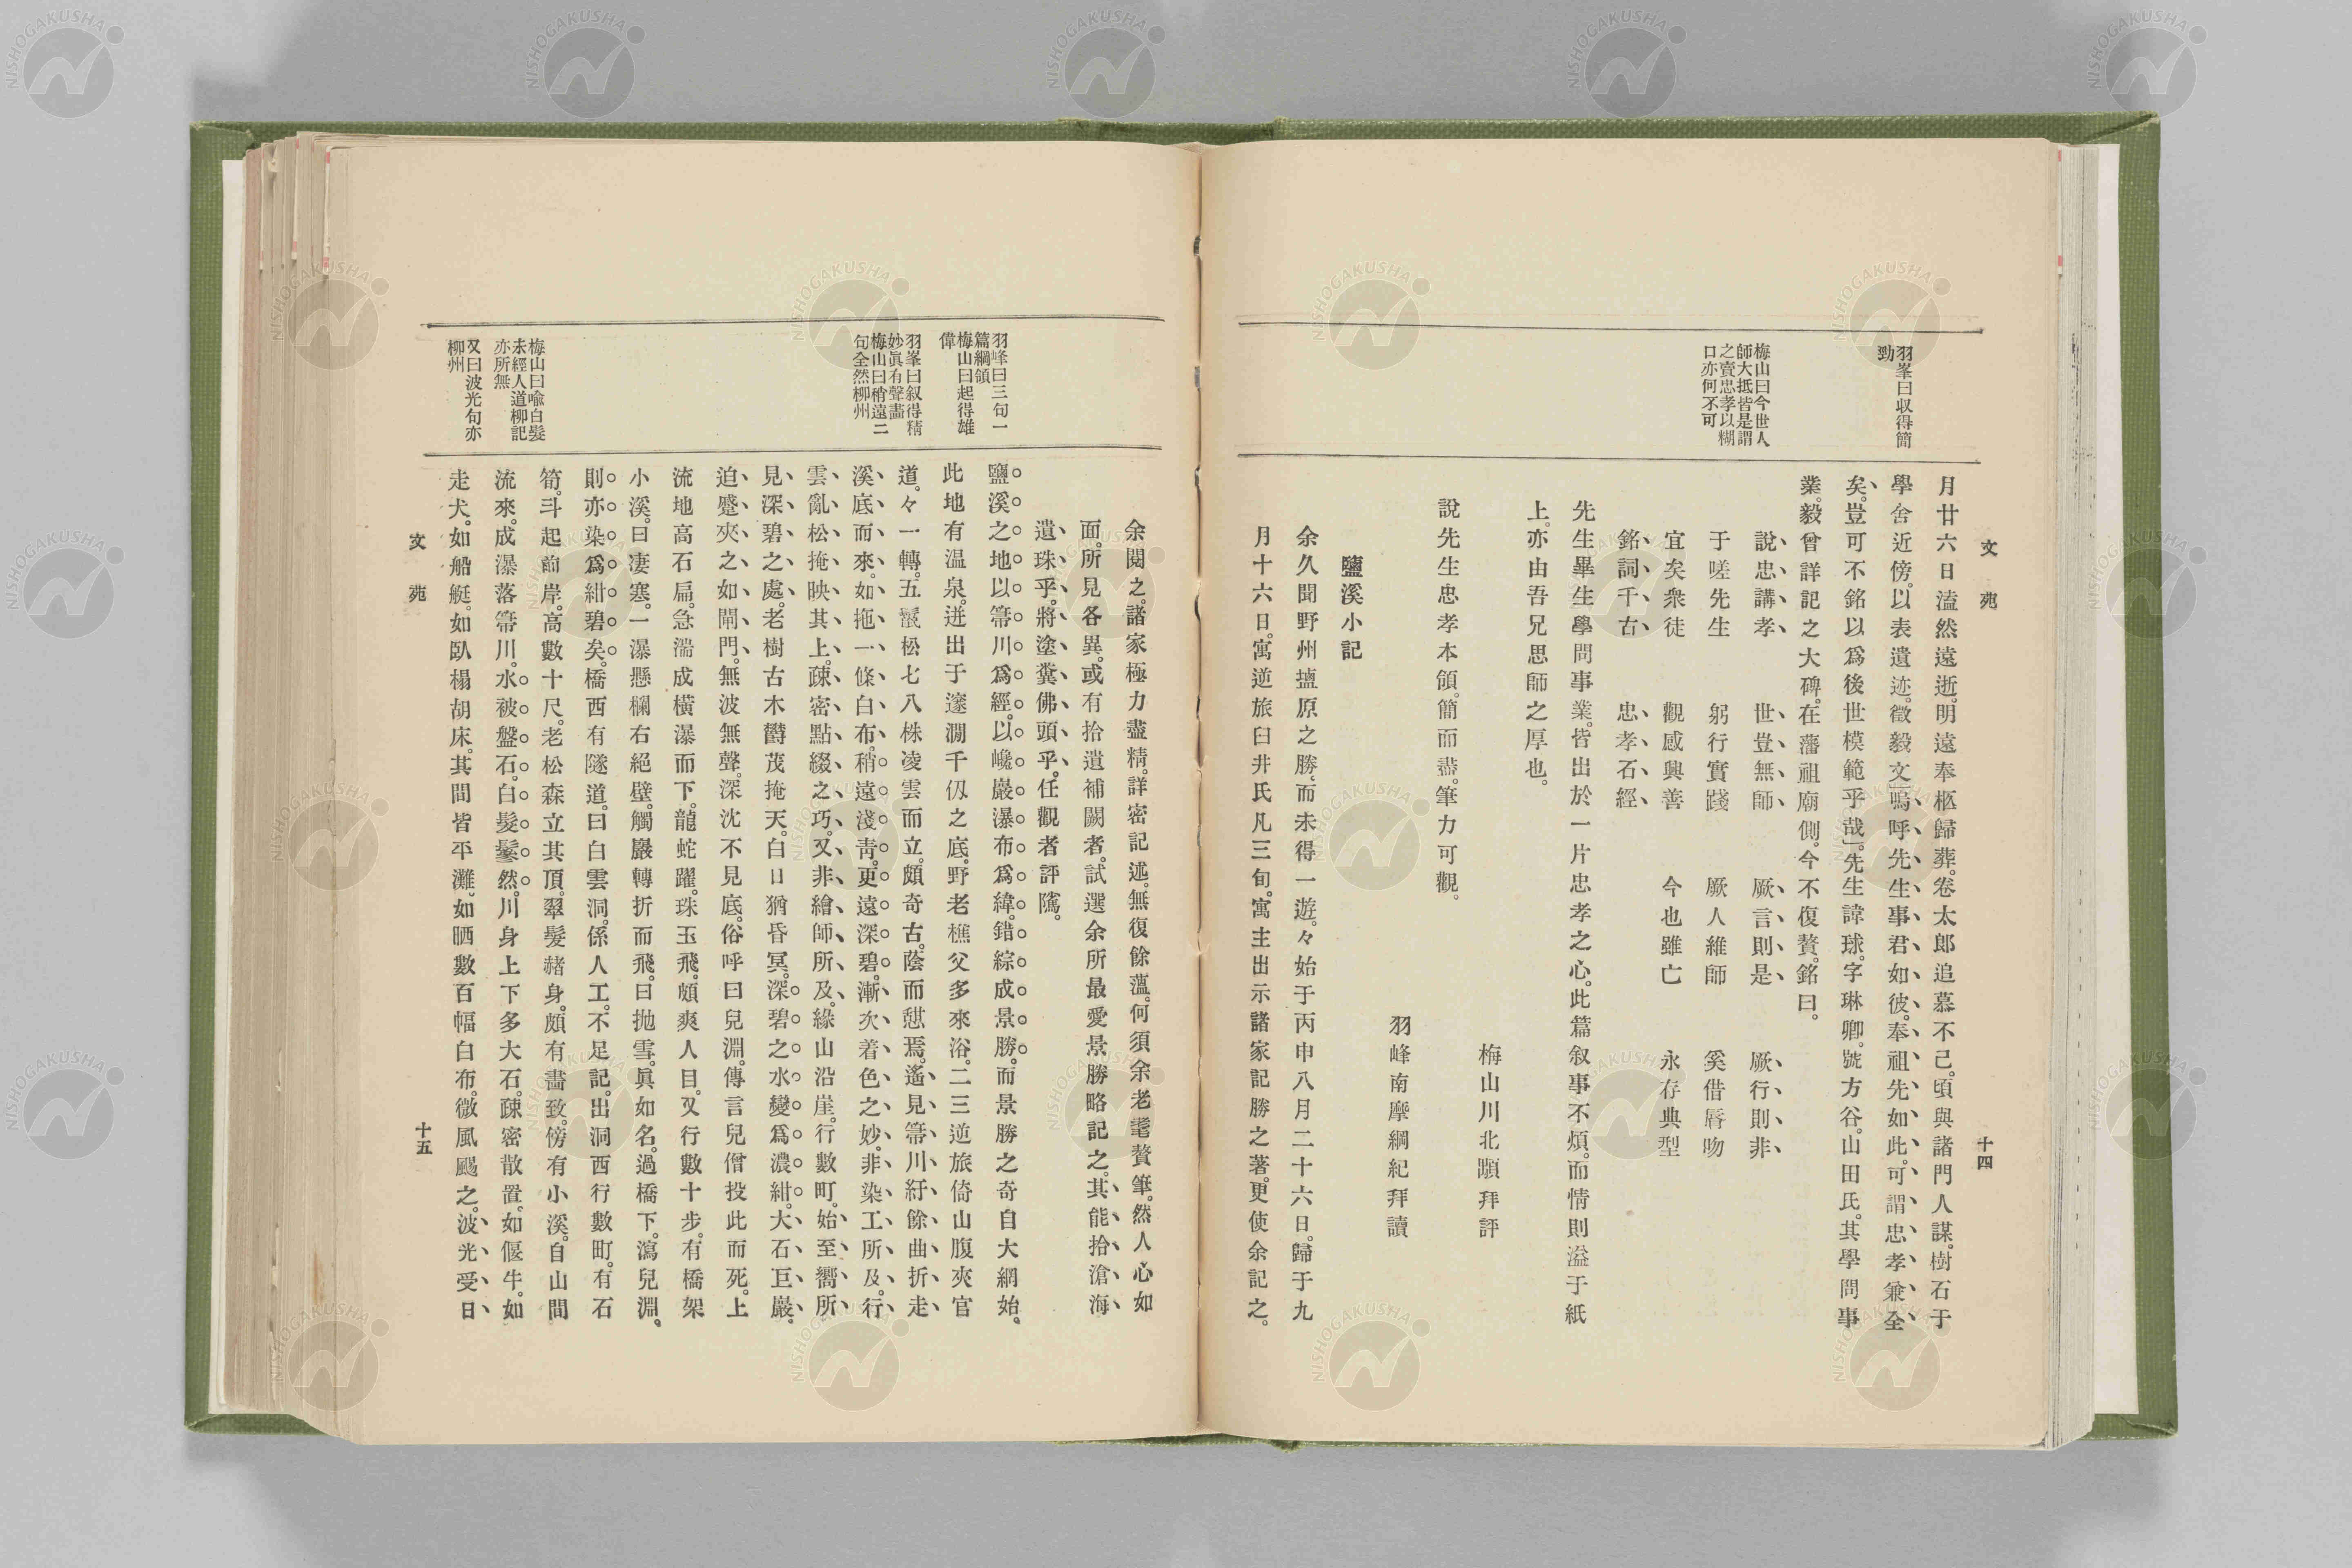 文苑
十四
羽峯曰収得簡
勁
梅山曰今世人
師大抵皆是謂
之賣忠孝以糊
口亦何不可
月廿六日溘然遠逝。明遠奉柩歸葬。卷太郎追慕不已。頃與諸門人謀。樹石于
學舍近傍。以表遺迹。徵毅文。嗚呼先生事君如彼。奉祖先如此。可謂忠孝兼全
矣。豈可不銘以爲後世模範乎哉」。先生諱球。字琳卿。號方谷。山田氏。其學問事
業。毅曾詳記之大碑。在藩祖廟側。今不復贅。銘曰。
說忠講孝 世豈無師 厥言則是 厥行則非
于嗟先生 躬行實踐 厥人維師 奚借脣吻
宜矣衆徒 觀感興善 今也雖亡 永存典型
銘詞千古 忠孝石經
先生畢生學問事業。皆出於一片忠孝之心。此篇叙事不煩。而情則溢于紙
上。亦由吾兄思師之厚也。
梅山川北顒拜評
說先生忠孝本領。簡而盡。筆力可觀。
羽峰南摩綱紀拜讀
鹽溪小記
余久聞野州塩原之勝。而未得一遊。々始于丙申八月二十六日。歸于九
月十六日。寓逆旅臼井氏凡三旬。寓主出示諸家記勝之著。更使余記之。
羽峰曰三句一
篇綱領
梅山曰起得雄
偉
羽峯曰叙得精
妙眞有聲畵
梅山曰稍遠二
句全然柳州
梅山曰喩白髮
未經人道柳記
亦所無
又曰波光句亦
柳州
余閱之。諸家極力盡精。詳密記述。無復餘薀。何須余老耄贅筆。然人心如
面。所見各異。或有拾遺補闕者。試選余所最愛景勝略記之。其能拾滄海
遺珠乎。將塗糞佛頭乎。任觀者評隲。
鹽溪之地以箒川爲經。以巉巖瀑布爲緯。錯綜成景勝。而景勝之奇自大網始。
此地有温泉。迸出于邃澗千仭之底。野老樵父多來浴。二三逆旅倚山腹夾官
道。々一轉。五鬣松七八株凌雲而立。頗奇古。蔭而憇焉。遙見箒川紆餘曲折走
溪底而來。如拖一條白布。稍遠淺靑。更遠深碧。漸次着色之妙。非染工所及。行
雲亂松掩映其上。疎密點綴之巧。又非繪師所及。緣山沿崖。行數町。始至嚮所
見深碧之處。老樹古木欝茂掩天。白日猶昏冥。深碧之水變爲濃紺。大石巨巖。
迫蹙夾之如閘門。無波無聲。深沈不見底。俗呼曰兒淵。傳言兒僧投此而死。上
流地高石扁。急湍成橫瀑而下。龍蛇躍。珠玉飛。頗爽人目。又行數十步。有橋架
小溪。曰凄寒。一瀑懸欄右絕壁。觸巖轉折而飛。曰抛雪。眞如名。過橋下。瀉兒淵。
則亦染爲紺碧矣。橋西有隧道。曰白雲洞。係人工。不足記。出洞西行數町。有石
筍。斗起前岸。高數十尺。老松森立其頂。翠髮赭身。頗有畵致。傍有小溪。自山間
流來。成瀑落箒川。水被盤石。白髮鬖然。川身上下多大石。疎密散置。如偃牛。如
走犬。如船艇。如臥榻胡床。其間皆平灘、如晒數百幅白布。微風颺之。波光受日
文苑
十五